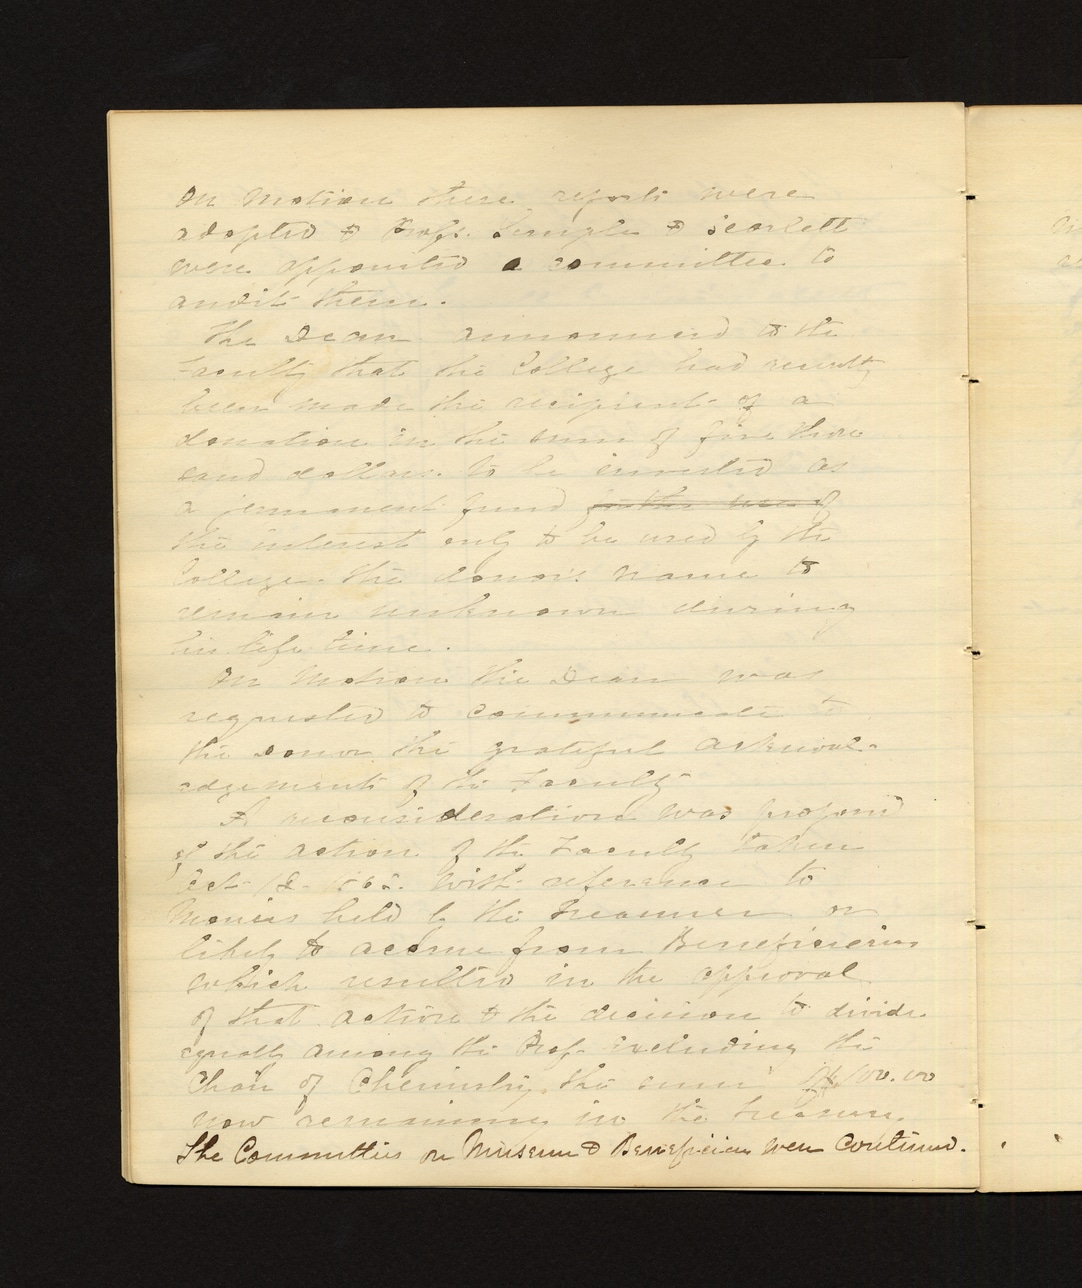 On Motion these reports were
adopted & Profs. Semple & Scarlett
were appointed a committee to
audit them.
The Dean announced to the
Faculty that the College had recently
been made the recipient of a
donation in the sum of five thou
sand dollars to be invested as
a permanent fund for the use of
the interest only to be used by the
College - the donor's name to
remain unknown during
his life time.
On Motion the Dean was
requested to communicate to
the donor the grateful acknowl-
edgements of the Faculty
A reconsideration was proposed
of the action of the Faculty taken
Oct. with reference to
Monies held by the Treasurer or
likely to accrue from Beneficiaries
which resulted in the approval
of that action & the decision to divide
equally among the Profs. including the
Chair of Chemistry, the sum
now remaining in the Treasury.
The Committies on Museum & Beneficiaries were Continued.